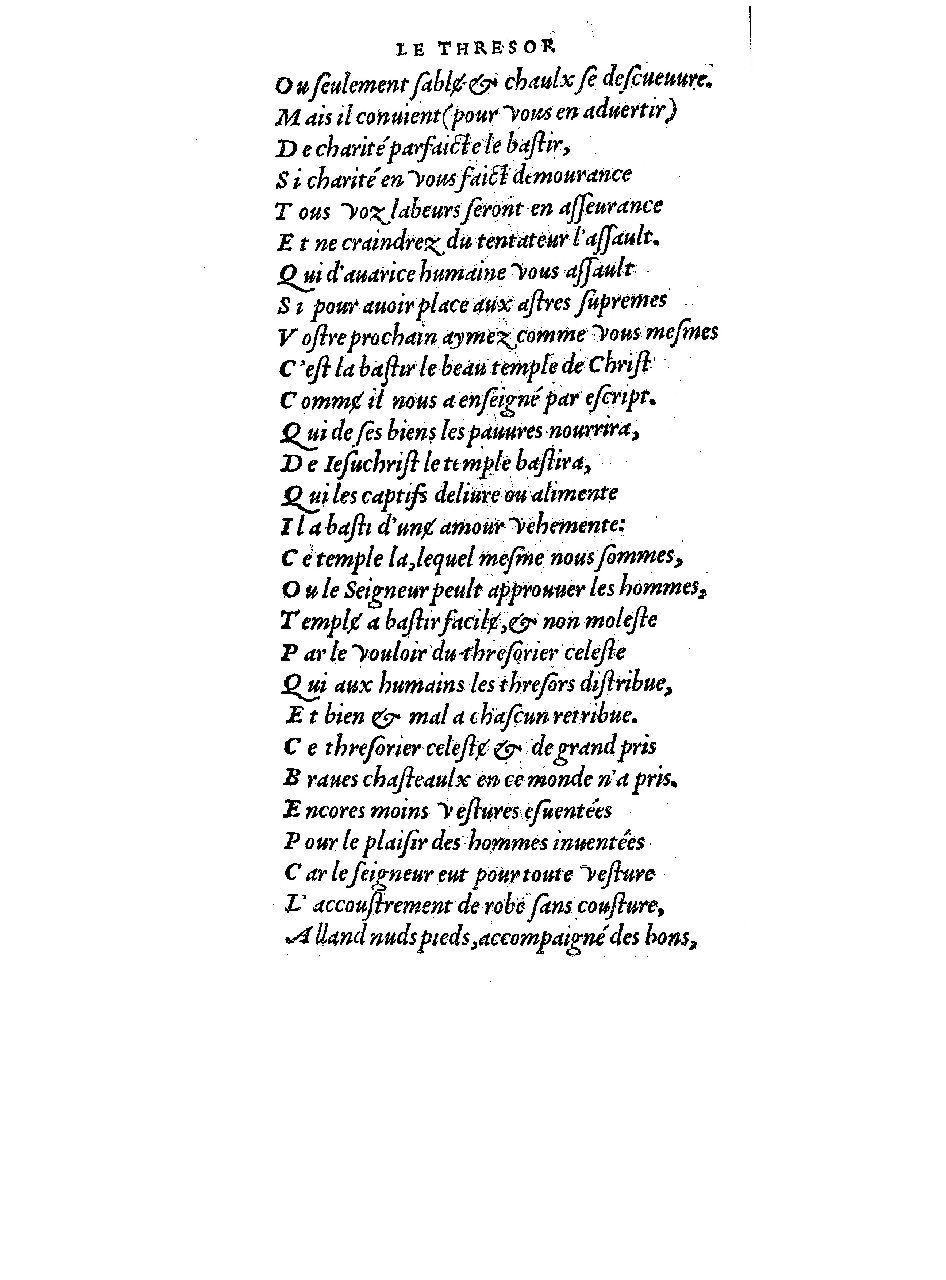 LE THRESOR
Ou ſeulement ſablɇ & chaulx ſe deſcueuure.
Mais il conuient (pour vous en aduertir)
De charité parfaicte le baſtir,
Si charité en vous faict demourance
Tous voz labeurs ſeront en aſſeurance
Et ne craindrez du tentateur l'aſſault.
Qui d'auarice humaine vous aſſault
Si pour auoir place aux aſtres ſupremes
Voſtre prochain aymez comme vous meſmes
C'eſt la baſtir le beau temple de Chriſt
Commɇ il nous a enſeigné par eſcript.
Qui de ſes biens les pauures nourrira,
De Ieſuchriſt le temple baſtira,
Qui les captifs deliure ou alimente
Il a baſti d'unɇ amour vehemente:
Ce temple la, lequel meſme nous ſommes,
Ou le Seigneur peult approuuer les hommes,
Templɇ a baſtir facilɇ, & non moleſte
Par le vouloir du threſorier celeſte
Qui aux humains les threſors diſtribue,
Et bien & mal a chaſcun retribue.
Ce threſorier celeſtɇ & de grand pris
Braues chaſteaulx en ce monde n'a pris.
Encores moins veſtures eſuentées
Pour le plaiſir des hommes inuentées
Car le ſeigneur eut pour toute veſture
L'accouſtrement de robe ſans couſture,
Alland nuds pieds, accompaigné des bons,